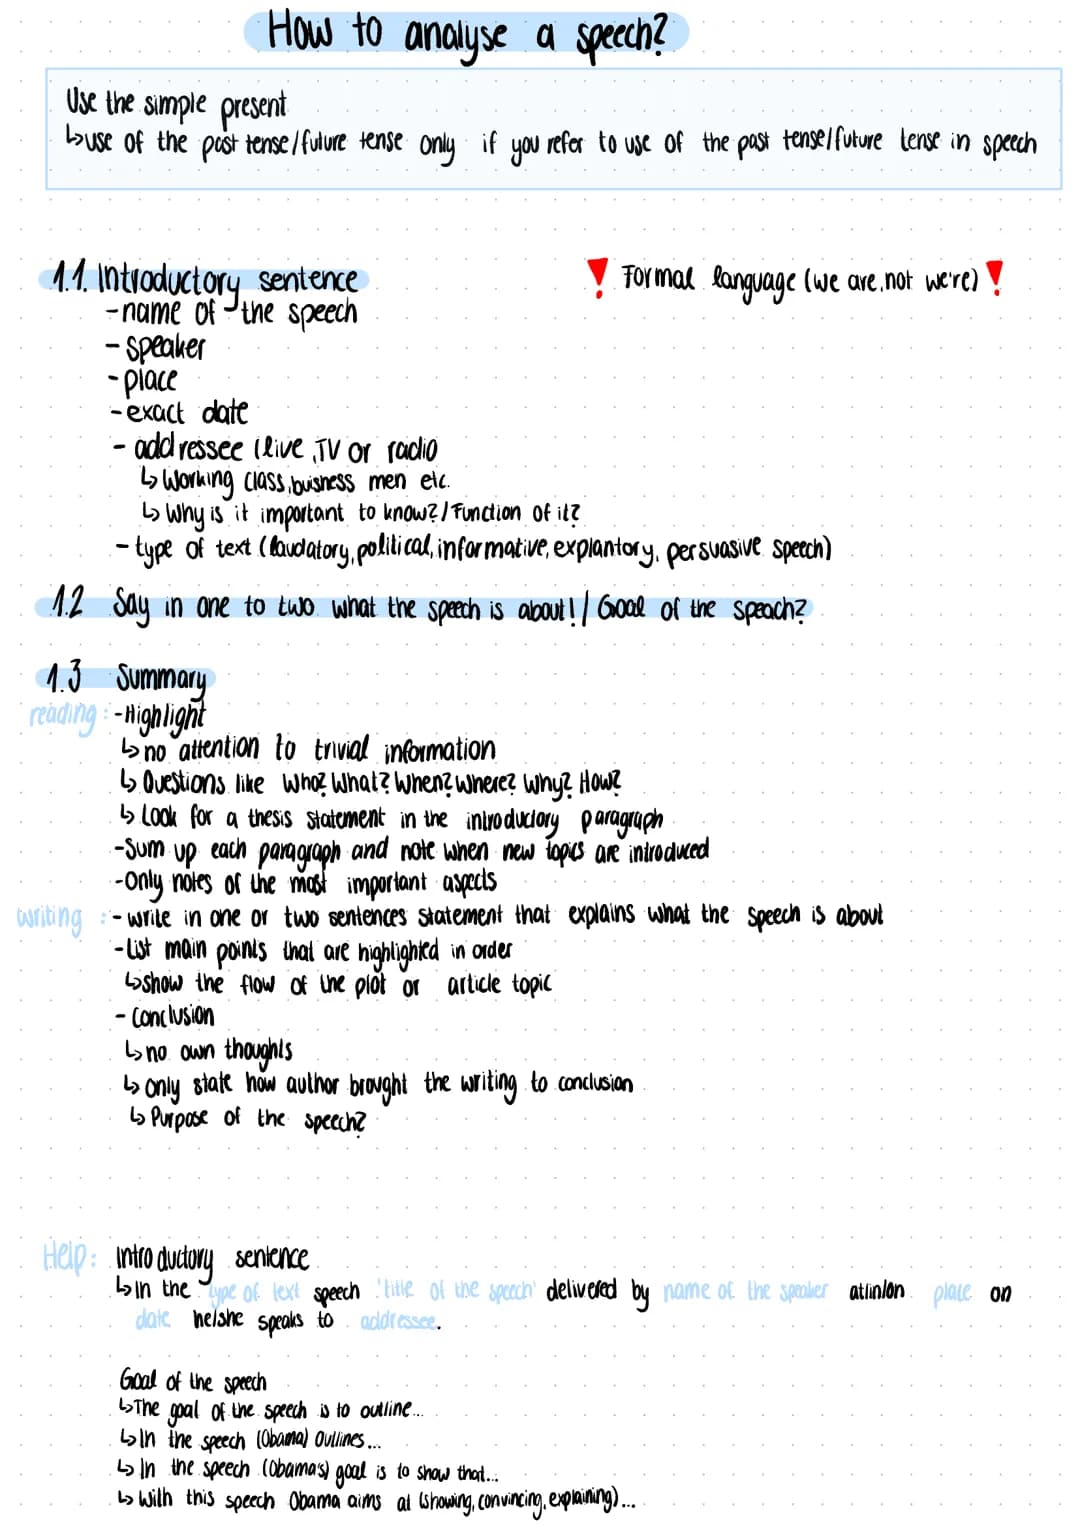 How to analyse a speech?
Use the simple present
↳use of the past tense/future tense only if you refer to use of the past tense/future tense in speech
1.1. Introductory sentence
❗ Formal language (we are, not we're) ❗
-name of the speech
- speaker
- place
-exact date
- addressee (live, TV or radio
↳ Working class, buisness men etc.
↳ Why is it important to know?/Function of it?
- type of text (laudatory, political, informative, explantory, persuasive speech)
1.2 Say in one to two what the speech is about!/ Goal of the speach?
1.3 Summary
reading: -Highlight
↳ no attention to trivial information
↳ Questions like Who? What? When? Where? Why? How?
↳ Look for a thesis statement in the introductory paragraph
-Sum up each paragraph and note when new topics are introduced
-Only notes of the most important aspects
writing :- write in one or two sentences statement that explains what the speech is about
-List main points that are highlighted in order
↳show the flow of the plot or article topic
- Conclusion
↳ no own thoughts
↳ only state how author brought the writing to conclusion
↳ Purpose of the speech?
Help: Introductory sentence
↳ In the type of text speech 'title of the speech' delivered by name of the speaker at/in/on place on
date he/she speaks to addressee.
Goal of the speech
↳The goal of the speech is to outline...
↳In the speech (Obama) Outlines...
↳ In the speech (Obama's) goal is to show that...
↳ With this speech Obama aims at (showing, convincing, explaining)...